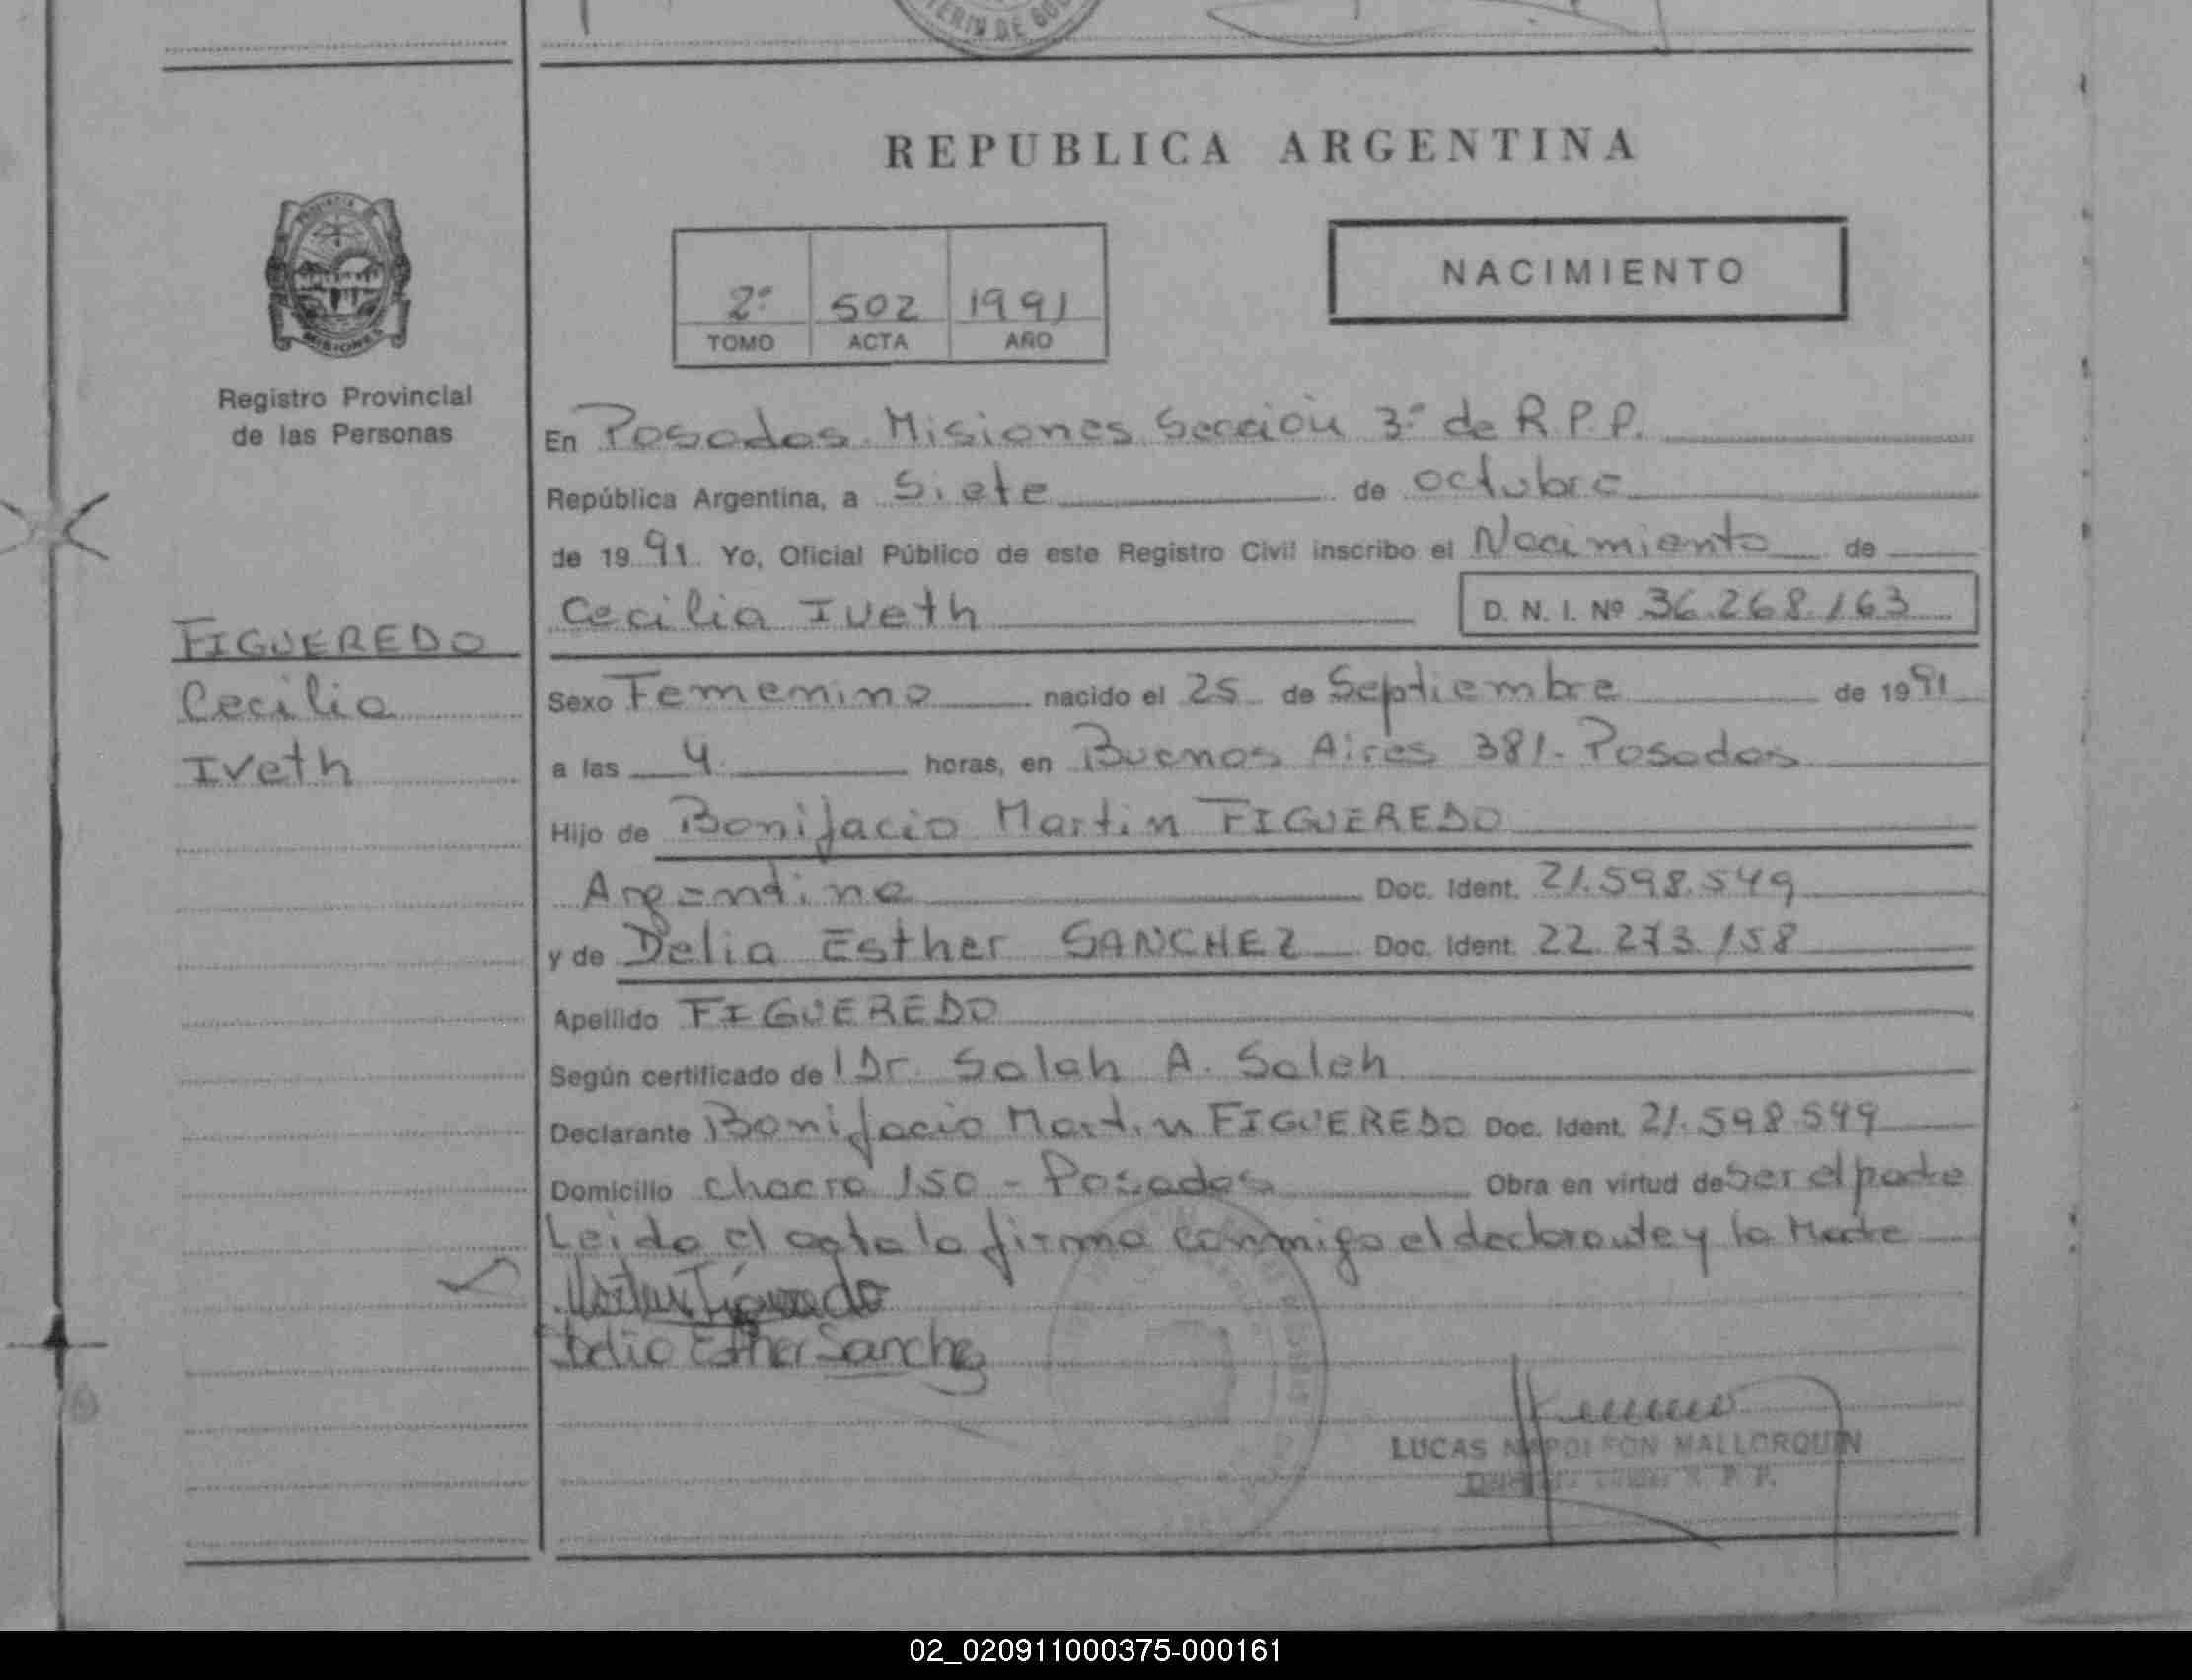 TERIO DE GOB
REPUBLICA ARGENTINA
PROVINCIA DE
MISIONES
2º 502 1991
TOMO ACTA AÑO
NACIMIENTO
Registro Provincial
de las Personas
En Posadas Misiones Sección 3º de R.P.P.
República Argentina, a Siete de octubre
de 1991. Yo, Oficial Público de este Registro Civil inscribo el Nacimiento de
Cecilia Iveth D. N. I. Nº 36.268.163
FIGUEREDO
Cecilia
Iveth
Sexo Femenino nacido el 25 de Septiembre de 1991
a las 4 horas, en Buenos Aires 381- Posadas
Hijo de Bonifacio Martin FIGUEREDO
Argentina Doc. Ident. 21.598.549
y de Delia Esther SANCHEZ Doc. Ident. 22.273.158
Apellido FIGUEREDO
Según certificado de l Dr. Saleh A. Saleh
Declarante Bonifacio Martin FIGUEREDO Doc. Ident. 21.598.549
Domicilio chacra 150 - Posadas Obra en virtud de Ser el padre
Leida el acta la firma conmigo el declarante y la Madre
Martin Figueredo
Delia Esther Sanchez
LUCAS NAPOLEON MALLORQUIN
R. P. P.
02_020911000375-000161